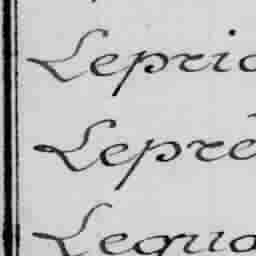 Lepric
Lepré
Lequo